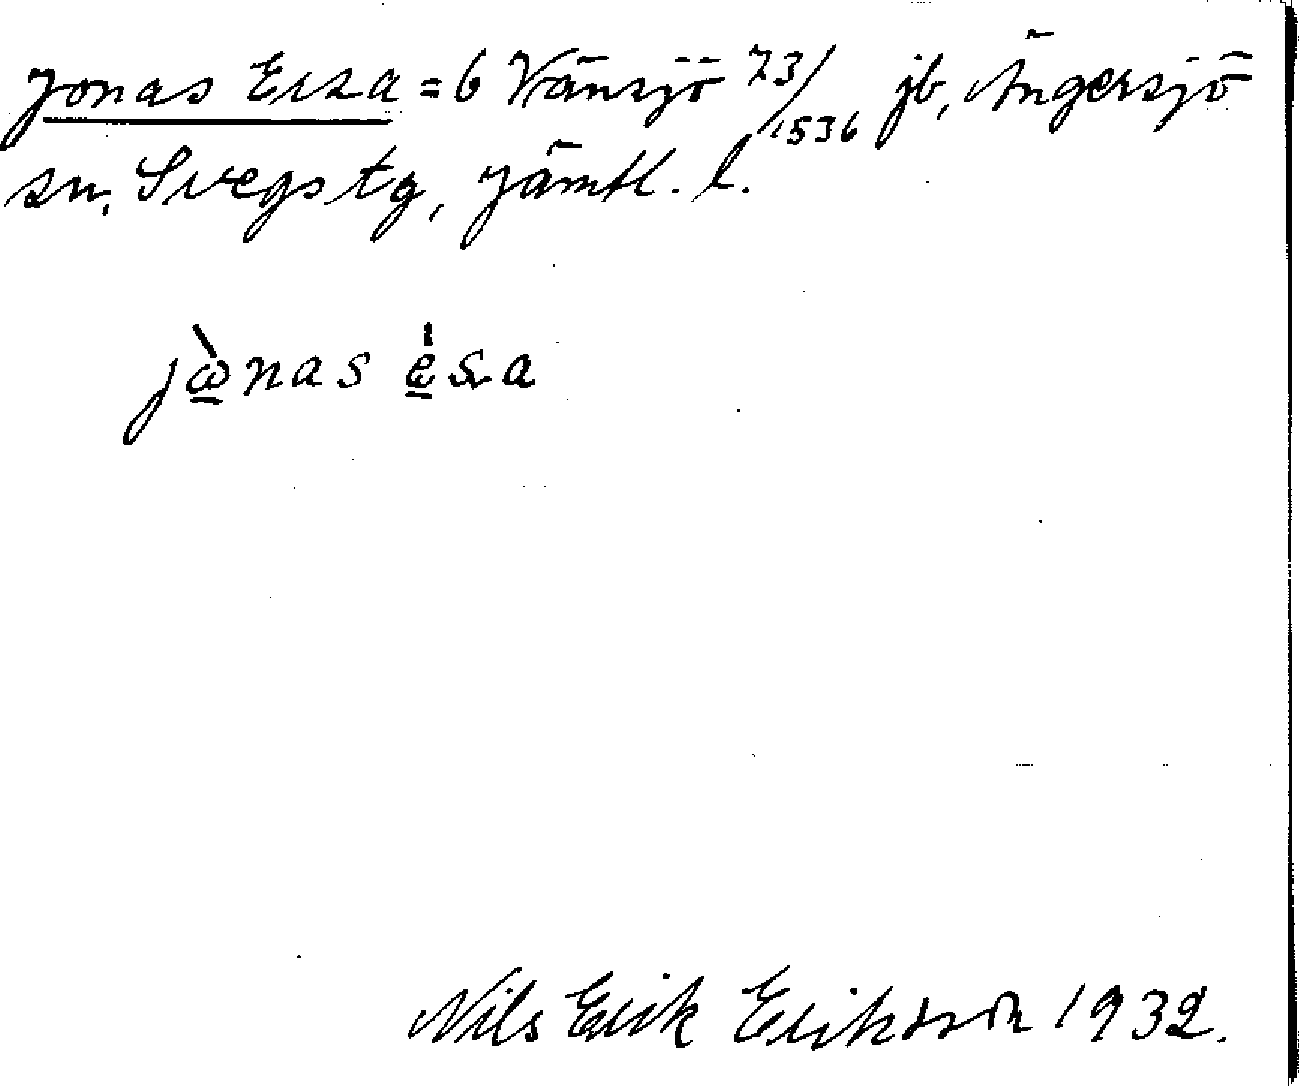 Jonas Ersa = 6 Vänsjö 73/1536 jb, Ängersjö
sn, Svegs tg, Jämtl. l.
jὼ̱nas e̱̍sa
Nils Erik Eriksson 1932.